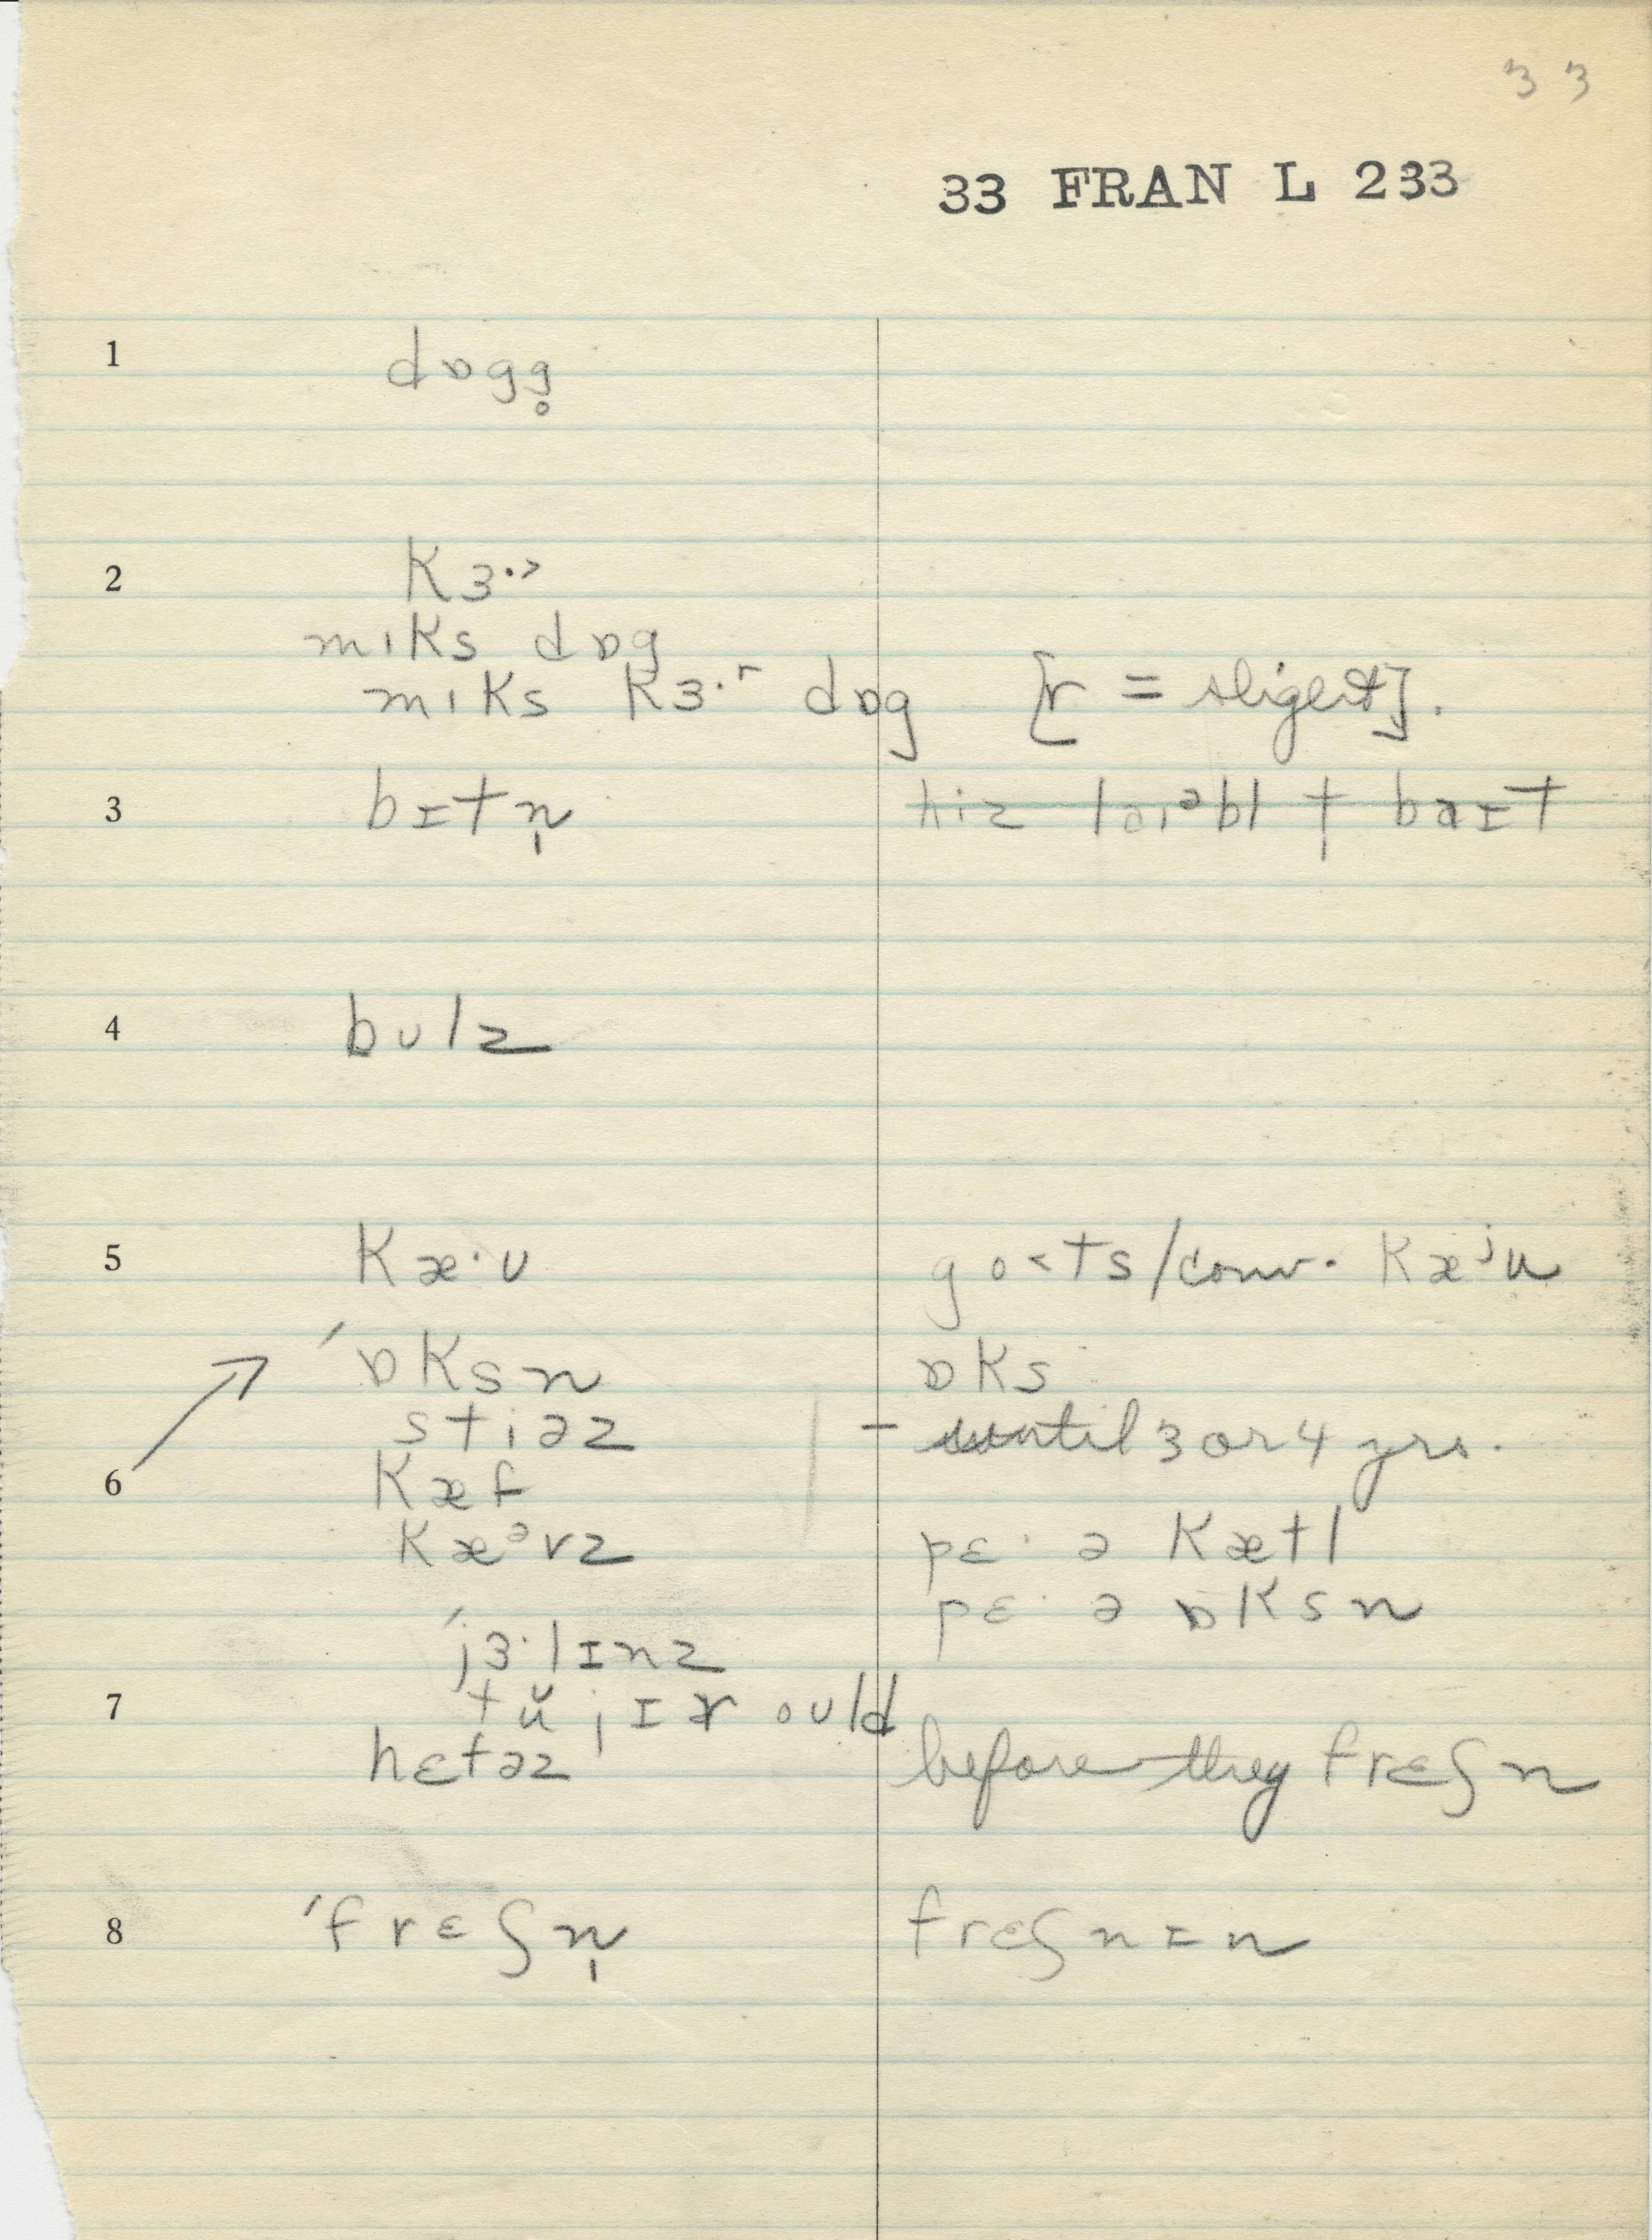 33
33 FRAN L 233
1 dɒgg̥
2 Kɜ·˃
mıKs dɒg
mıKs Kɜ·ʳ dɒg [r = sligest].
3 bɪtn̩ hiz laıᵊbl t baɪt
4 bʊlz
5 Kæ·ʊ go˂ts/conv. Kæʲu
ˊɒKsn ɒKs
stiəz – until 3 or 4 yrs.
6 Kæf
Kæᵊvz pɛ· ə Kætl
pɛ· ə ɒKsn
ˊjɜ·lɪnz
7 tŭ jɪɚ oʊld
hɛtəz before they frɛʃn
8 ˊfrɛʃn̩ frɛʃnɪn